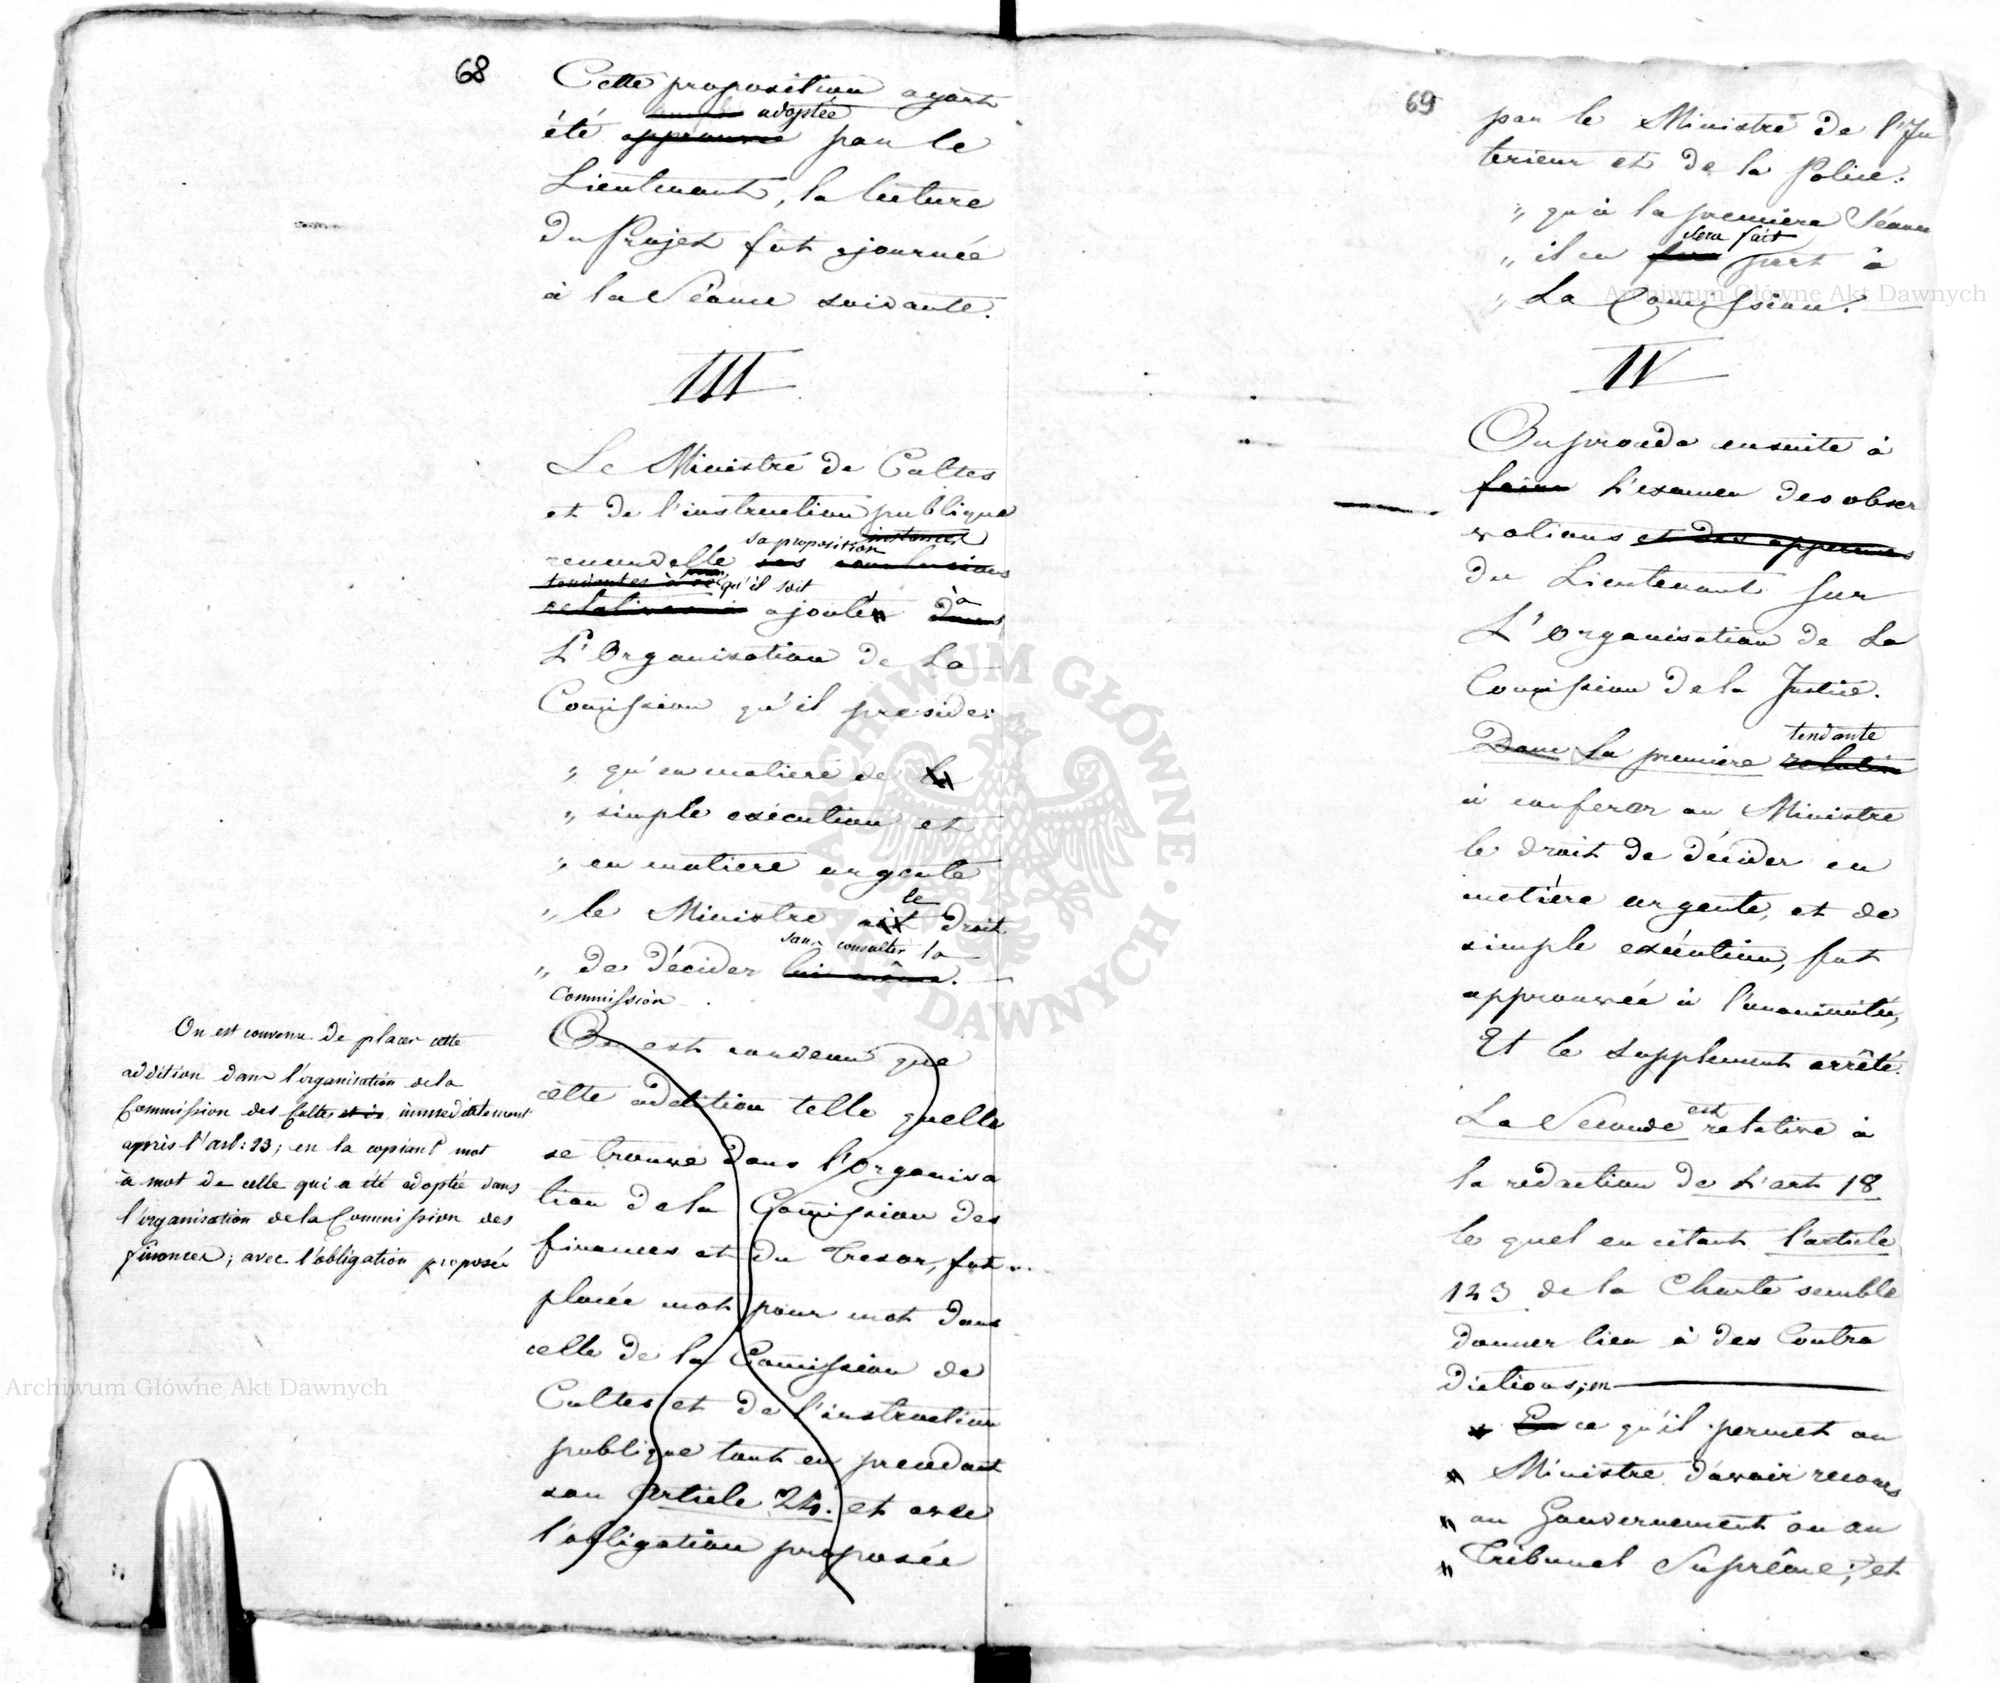 68
Cette proposition ayant
adoptée
été approuvée par le
Lieutenant, la lecture
du Projet fut ajournée
à la Séance suivante.
III
Le Ministre de Cultes
et de l'instruction publique
sa proposition instances
renouvelle ses conclusions
tendantes à ce qu'il soit
relatives à ajouter à dans
L'Organisation de La
Comission qu'il preside:
„ qu'en matiere de la
„ simple exécution et
„ en matiere urgente
„ le Ministre ait le droit
sans consulter la
„ de décider lui même.
Commission
On est convenu de placer cette
addition dans l'organisation de la
Commission des Cultes et is immediatement
après l'art: 23; en la copiant mot
à mot de celle qui a été adoptée dans
l'organisation de la Commission des
finances; avec l'obligation proposée
On est convenu que
cette addition telle quelle
se trouve dans l'Organisa
tion de la Comission des
finances et du Tresor, fut
placée mot pour mot dans
celle de la Comission de
Cultes et de l'instruction
publique tout en prendant
son Article 24. et avec
l'obligation proposée
69
par le Ministre de l'In
terieur et de la Police.
„ qu'à la premiere Séance
sera fait
„ il en fera part à
„ La Comission.
IV
On proceda ensuite à
faire L'examen des obser
vations et des apperçues
du Lieutenant sur
L'Organisation de La
Comission de la Justice.
tendante
Dans La premiere relative
à conferer au Ministre
le droit de décider en
matière urgente, et de
simple exécution, fut
approuvée à l'unanimité,
Et le supplement arrêté.
La Seconde est relative à
la redaction de L'art 18
le quel en citant l'article
123 de la Charte semble
donner lieu à des Contra
dictions; en
„ En ce qu'il permet au
„ Ministre d'avoir recours
„ au Gouvernement ou au
„ Tribunal Suprême; et
Archiwum Główne Akt Dawnych
Archiwum Główne Akt Dawnych
ARCHIWUM GŁÓWNE AKT DAWNYCH